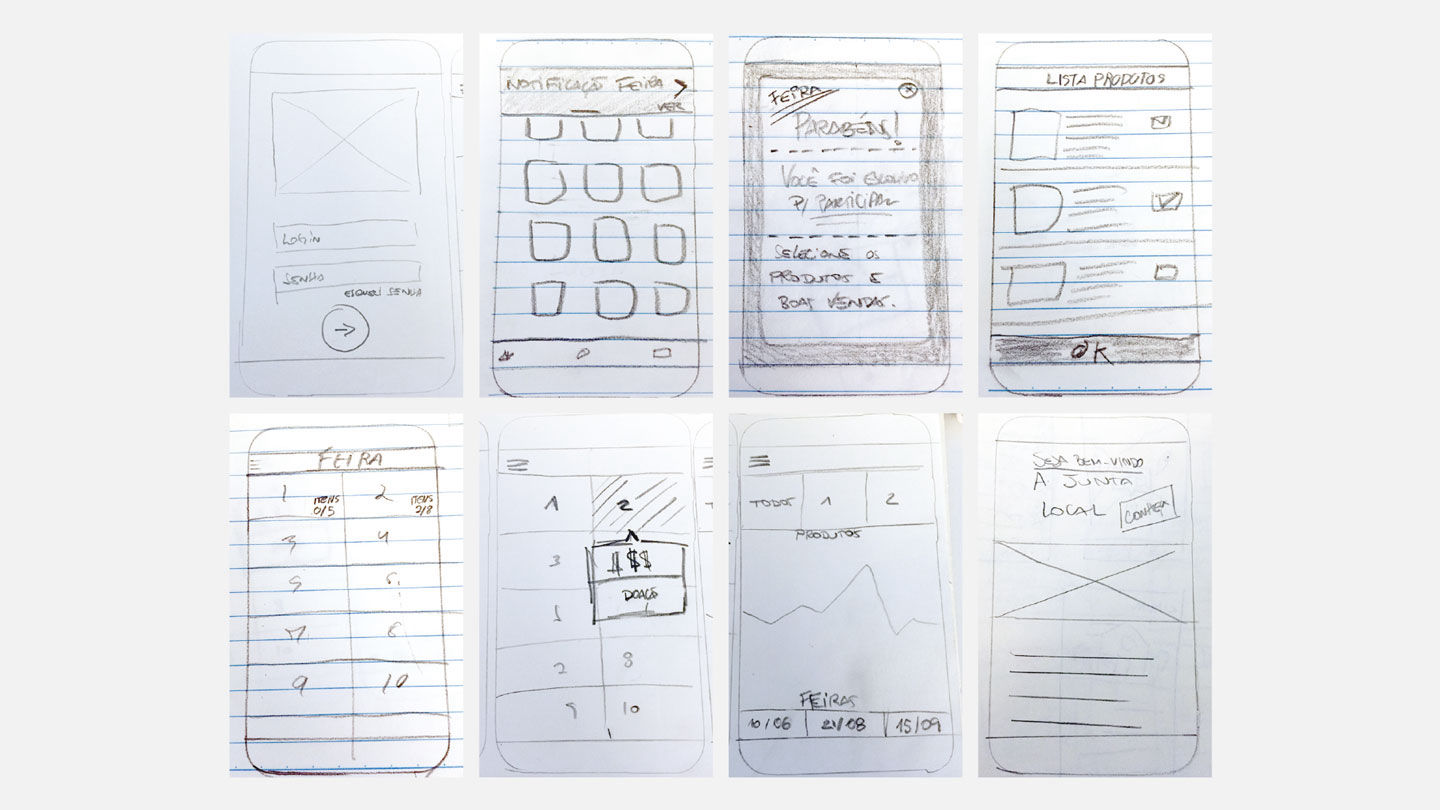 LOGIN
SENHA
ESQUECI SENHA
NOTIFICAÇÃO FEIRA >
VER
FEIRA
X
PARABÉNS!
VOCÊ FOI ESCOLHIDO
P/ PARTICIPAR
SELECIONE OS
PRODUTOS E
BOAS VENDAS.
LISTA PRODUTOS
OK
FEIRA
1 ITENS 0/5 2 ITENS 2/8
3 4
5 6
7 8
9 10
1 2
3 $$$
DOAÇÃO
5
8
9 10
TODOS 1 2
PRODUTOS
FEIRAS
10/06 24/08 15/09
SEJA BEM-VINDO
A JUNTA
LOCAL CONHEÇA